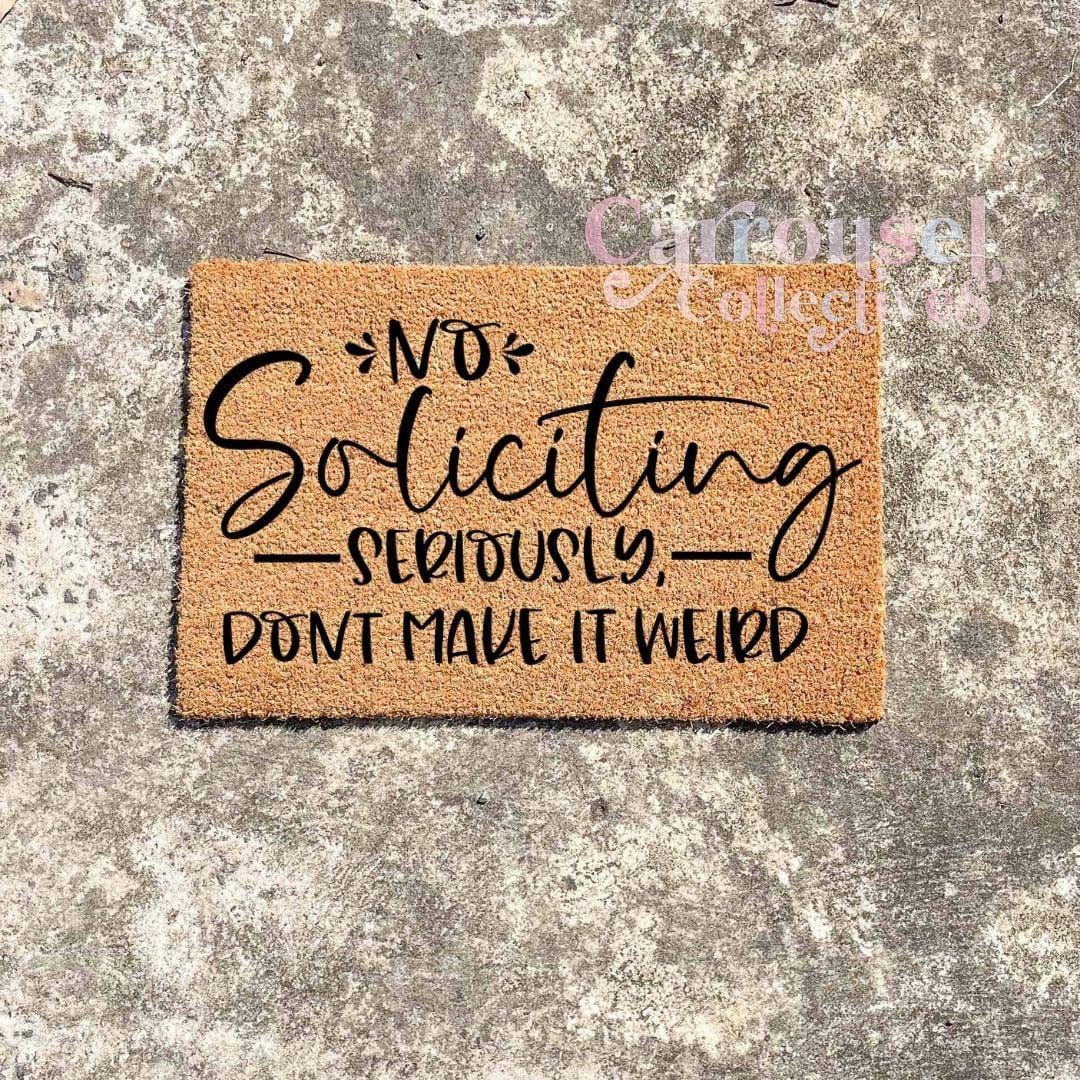 Carrousel
Collectives
NO
Soliciting
SERIOUSLY,
DONT MAKE IT WEIRD